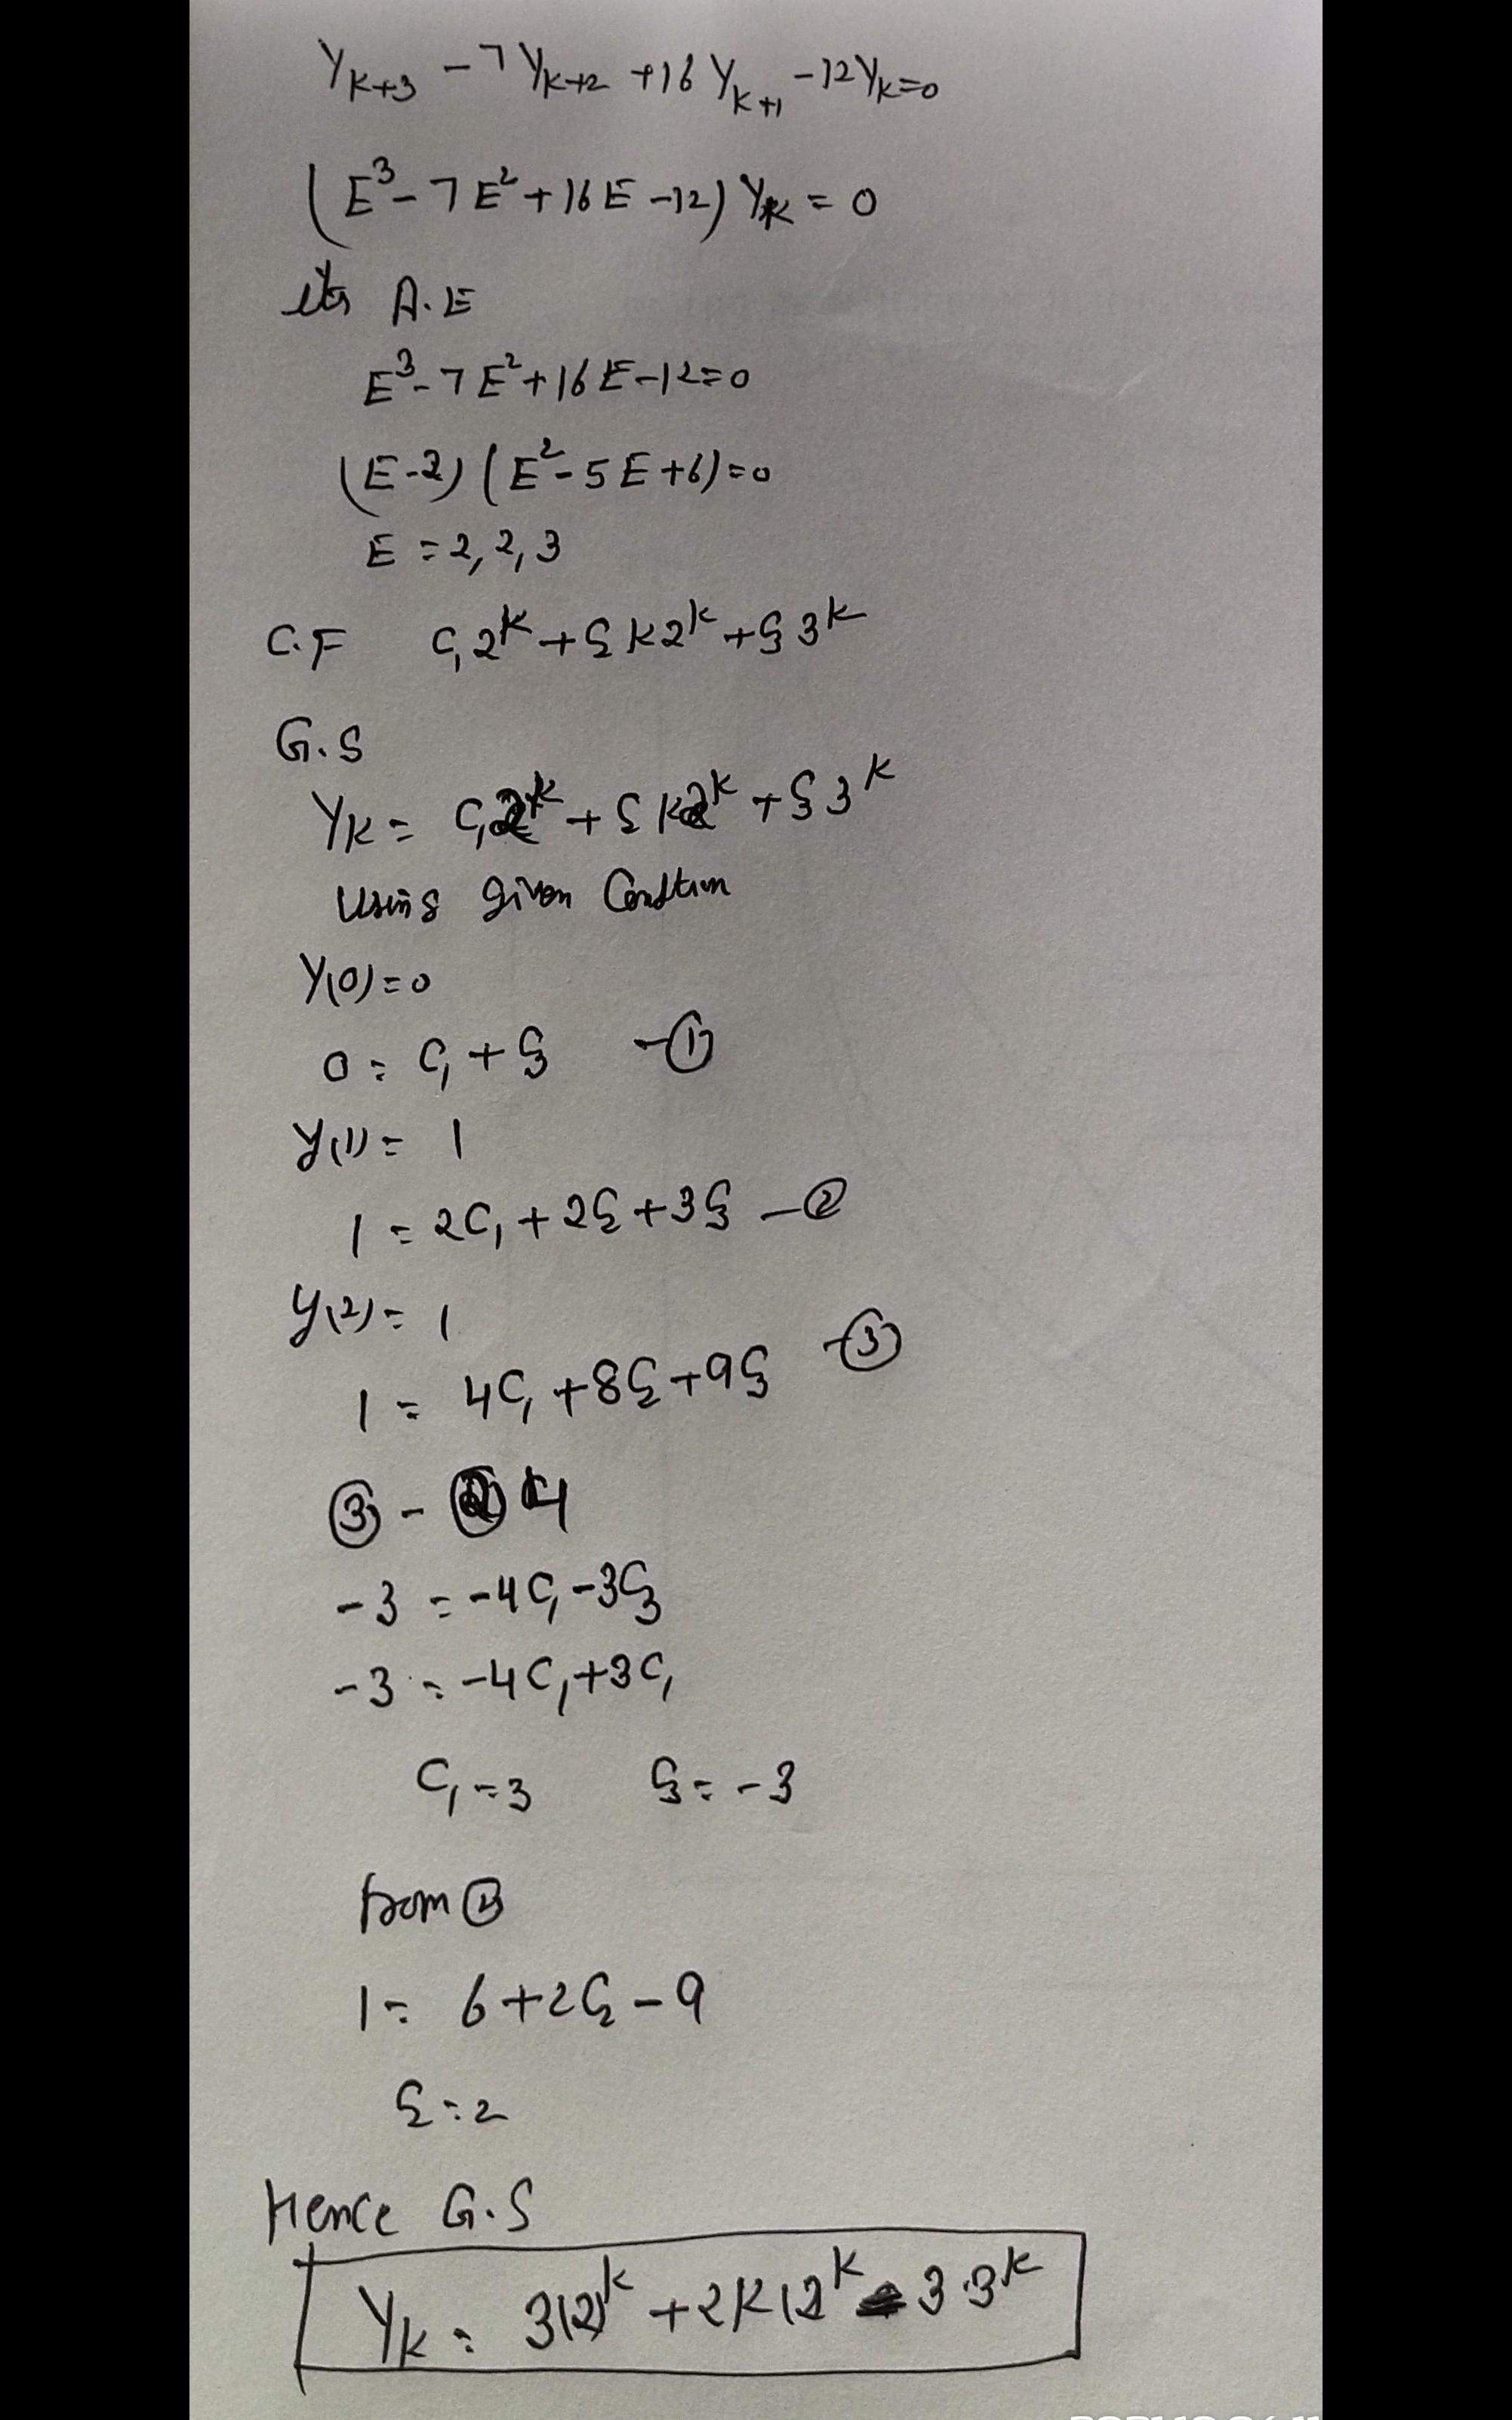 Y_{k+3} - 7Y_{k+2} + 16Y_{k+1} - 12Y_k = 0
(E³ - 7E² + 16E - 12) Y_k = 0
its A.E
E³ - 7E² + 16E - 12 = 0
(E-2) (E² - 5E + 6) = 0
E = 2, 2, 3
C.F C₁2^k + C₂k2^k + C₃3^k
G.S
Y_k = C₁2^k + C₂k2^k + C₃3^k
Using given Condtion
Y(0) = 0
0 = C₁ + C₃ - ①
y(1) = 1
1 = 2C₁ + 2C₂ + 3C₃ - ②
y(2) = 1
1 = 4C₁ + 8C₂ + 9C₃ - ③
③ - ② 4
-3 = -4C₁ - 3C₃
-3 = -4C₁ + 3C₁
C₁ = 3 C₃ = -3
from ②
1 = 6 + 2C₂ - 9
C₂ = 2
Hence G.S
Y_k = 3(2)^k + 2k(2^k - 3.3^k